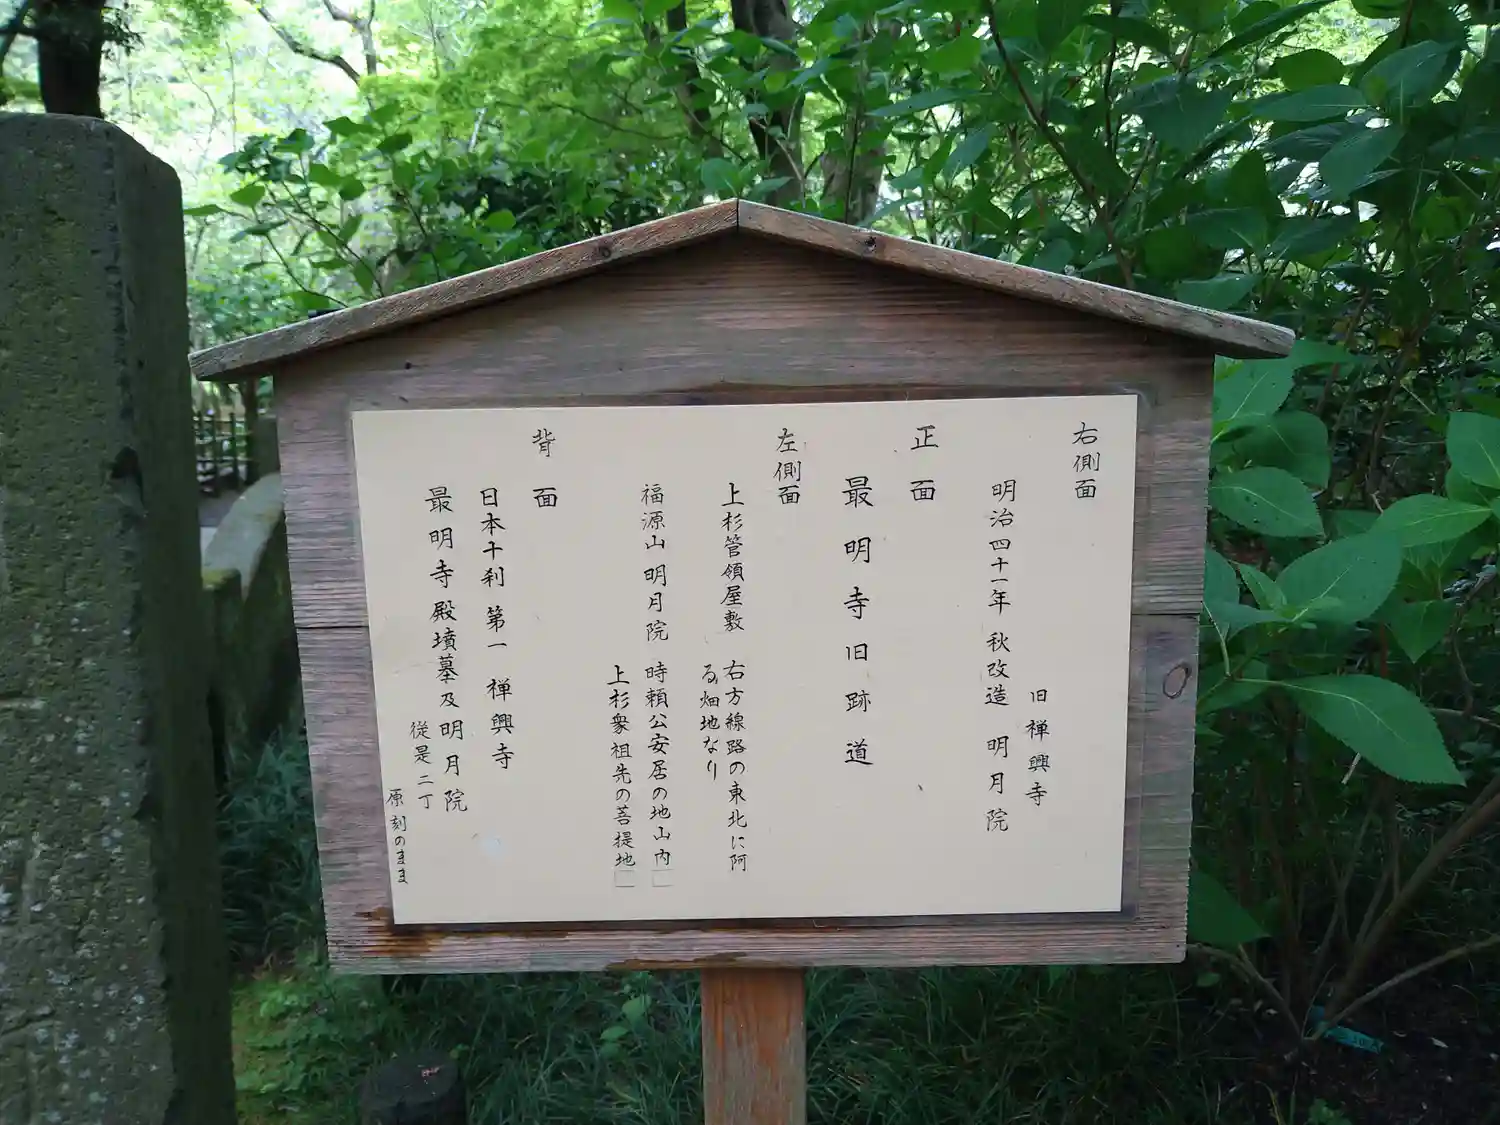 右側面
旧禅興寺
明治四十一年秋改造 明月院
正面
最明寺旧跡道
左側面
上杉管領屋敷 右方線路の東北に阿
る畑地なり
福源山明月院 時頼公安居の地山内□
上杉衆祖先の菩提地□
背面
日本十刹第一 禅興寺
最明寺殿墳墓及明月院
従是二丁
原刻のまま